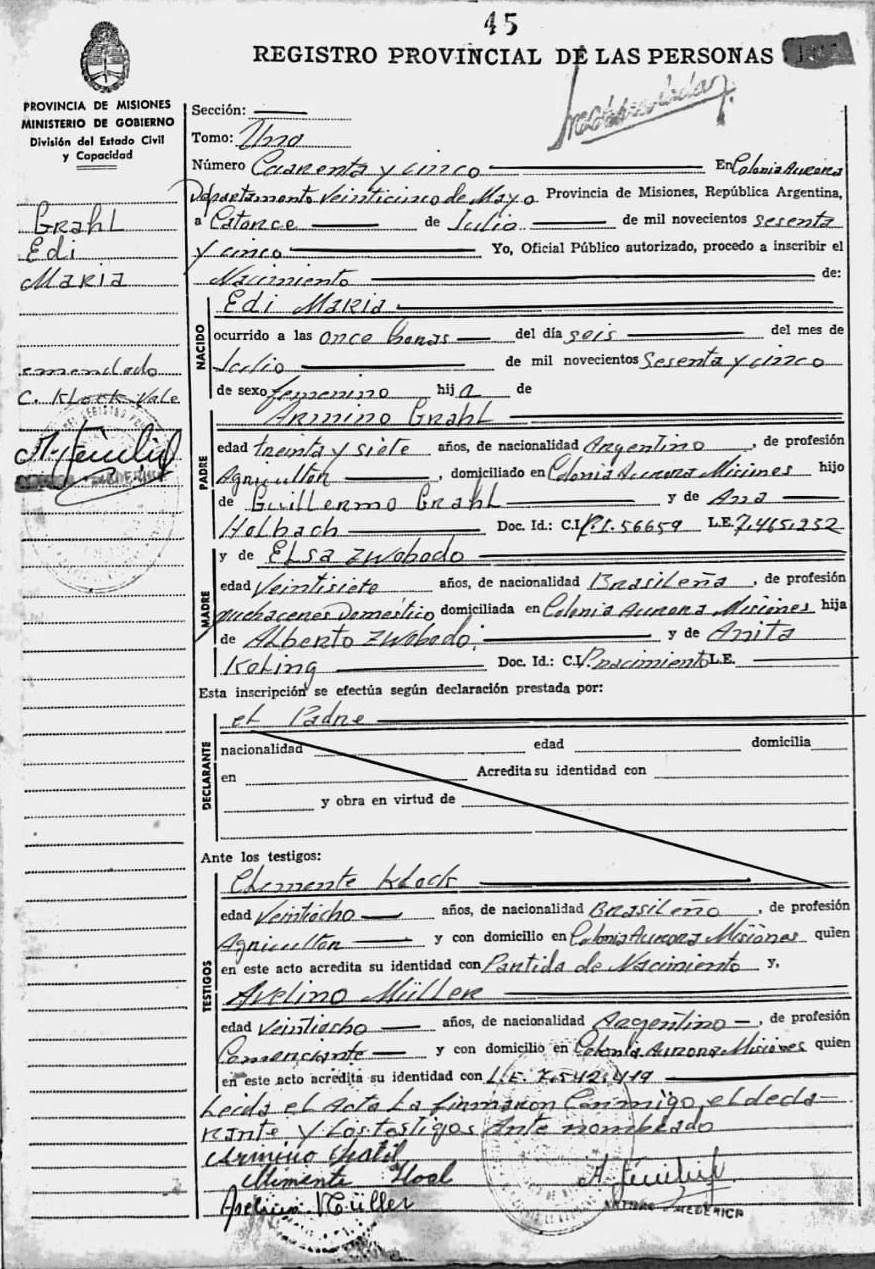 45
REGISTRO PROVINCIAL DE LAS PERSONAS
PROVINCIA DE MISIONES
MINISTERIO DE GOBIERNO
División del Estado Civil
y Capacidad
Grahl
Edi
Maria
emendado
C. Klock Vale
Sección:
Tomo: Uno
Número Cuarenta y cinco En Colonia Aurora
Departamento Veinticinco de Mayo Provincia de Misiones, República Argentina,
a Catorce de Julio de mil novecientos sesenta
y cinco Yo, Oficial Público autorizado, procedo a inscribir el
Nacimiento de:
NACIDO
Edi Maria
ocurrido a las once horas del día seis del mes de
Julio de mil novecientos sesenta y cinco
de sexo femenino hija de
PADRE
Armino Grahl
edad treinta y siete años, de nacionalidad Argentino, de profesión
Agricultor, domiciliado en Colonia Aurora Misiones hijo
de Guillermo Grahl y de Ana
Holbach Doc. Id.: C.I. 56659 L.E. 7.465.252
MADRE
y de Elsa Zwobodo
edad Veintisiete años, de nacionalidad Brasileña, de profesión
quehaceres Domestico domiciliada en Colonia Aurora Misiones hija
de Alberto Zwobodo y de Anita
Koling Doc. Id.: C.I. P. nacimiento L.E.
Esta inscripción se efectúa según declaración prestada por:
DECLARANTE
el Padre
nacionalidad edad domicilia
en Acredita su identidad con
y obra en virtud de
Ante los testigos:
TESTIGOS
Clemente Klock
edad Veintiocho años, de nacionalidad Brasileño, de profesión
Agricultor y con domicilio en Colonia Aurora Misiones quien
en este acto acredita su identidad con Partida de Nacimiento y,
Avelino Müller
edad Veintiocho años, de nacionalidad Argentino, de profesión
Comerciante y con domicilio en Colonia Aurora Misiones quien
en este acto acredita su identidad con L.E. 7.542.419
Leida el Acta La firmaron Conmigo, el decla-
rante y los testigos Ante nombrado
Armino Grahl
Klemente Kloch
Avelino Müller